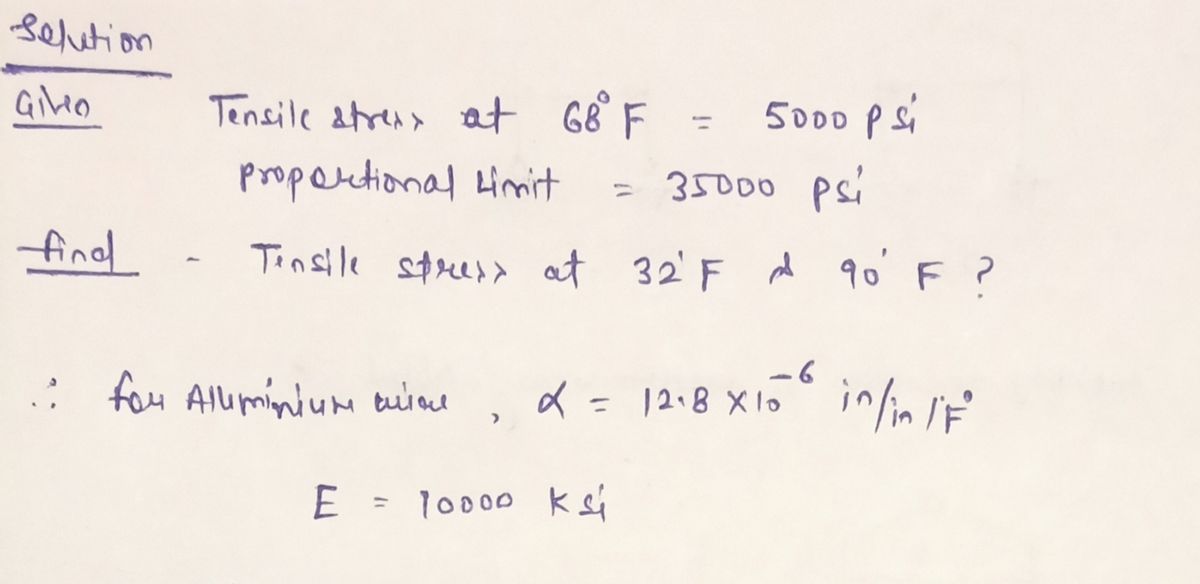 Solution
Given Tensile stress at 68° F = 5000 psi
proportional Limit = 35000 psi
find - Tensile stress at 32° F & 90° F ?
∴ for Alluminium wire , α = 12.8 × 10⁻⁶ in/in/F°
E = 10000 ksi